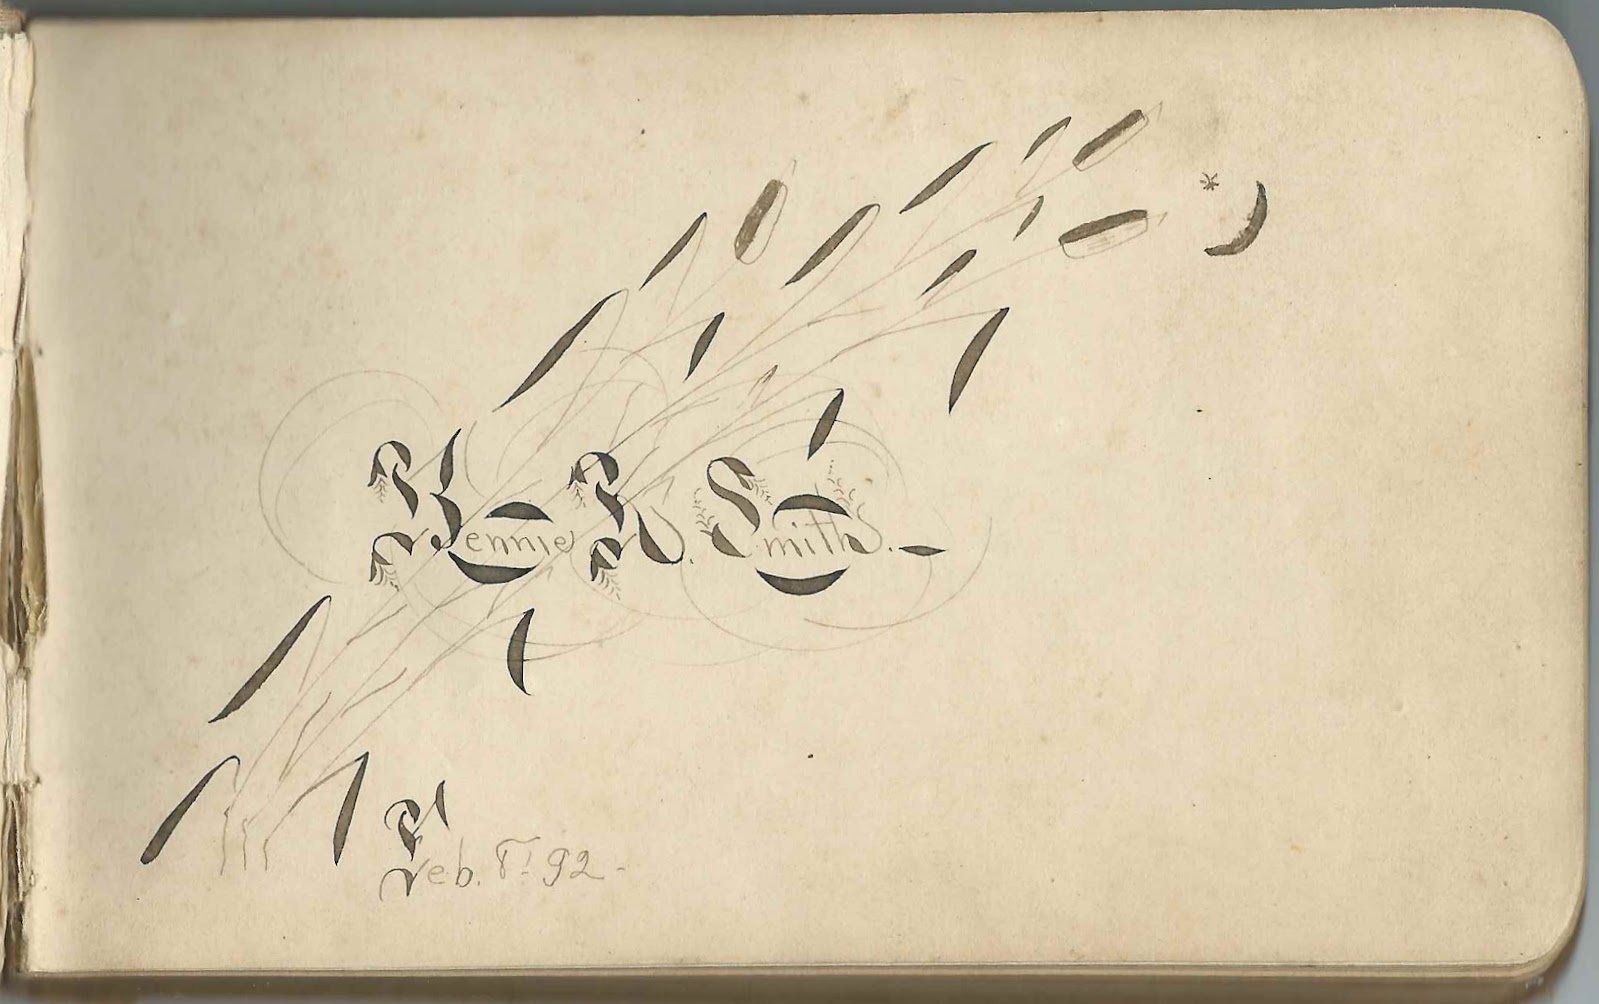 Kennie R. Smith.
Feb. 92-